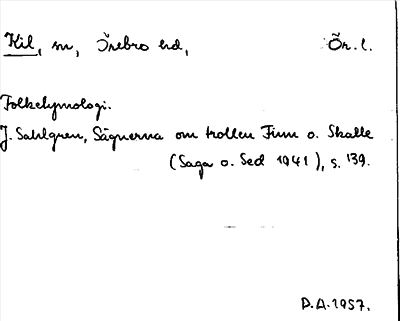 Kil, sn, Örebro hd, Ör. l.
Folketymologi.
J. Sahlgren, Sägnerna om trollen Finn o. Skalle
(Saga o. Sed 1941), s. 139.
D.A. 1957.